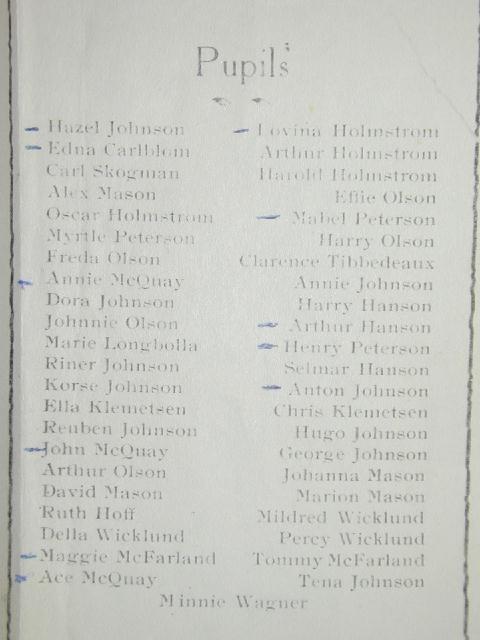 Pupils
Hazel Johnson
Edna Carlblom
Carl Skogman
Alex Mason
Oscar Holmstrom
Myrtle Peterson
Freda Olson
Annie McQuay
Dora Johnson
Johnnie Olson
Marie Longbolla
Riner Johnson
Korse Johnson
Ella Klemetsen
Reuben Johnson
John McQuay
Arthur Olson
David Mason
Ruth Hoff
Della Wicklund
Maggie McFarland
Ace McQuay
Lovina Holmstrom
Arthur Holmstrom
Harold Holmstrom
Effie Olson
Mabel Peterson
Harry Olson
Clarence Tibbedeaux
Annie Johnson
Harry Hanson
Arthur Hanson
Henry Peterson
Selmar Hanson
Anton Johnson
Chris Klemetsen
Hugo Johnson
George Johnson
Johanna Mason
Marion Mason
Mildred Wicklund
Percy Wicklund
Tommy McFarland
Tena Johnson
Minnie Wagner